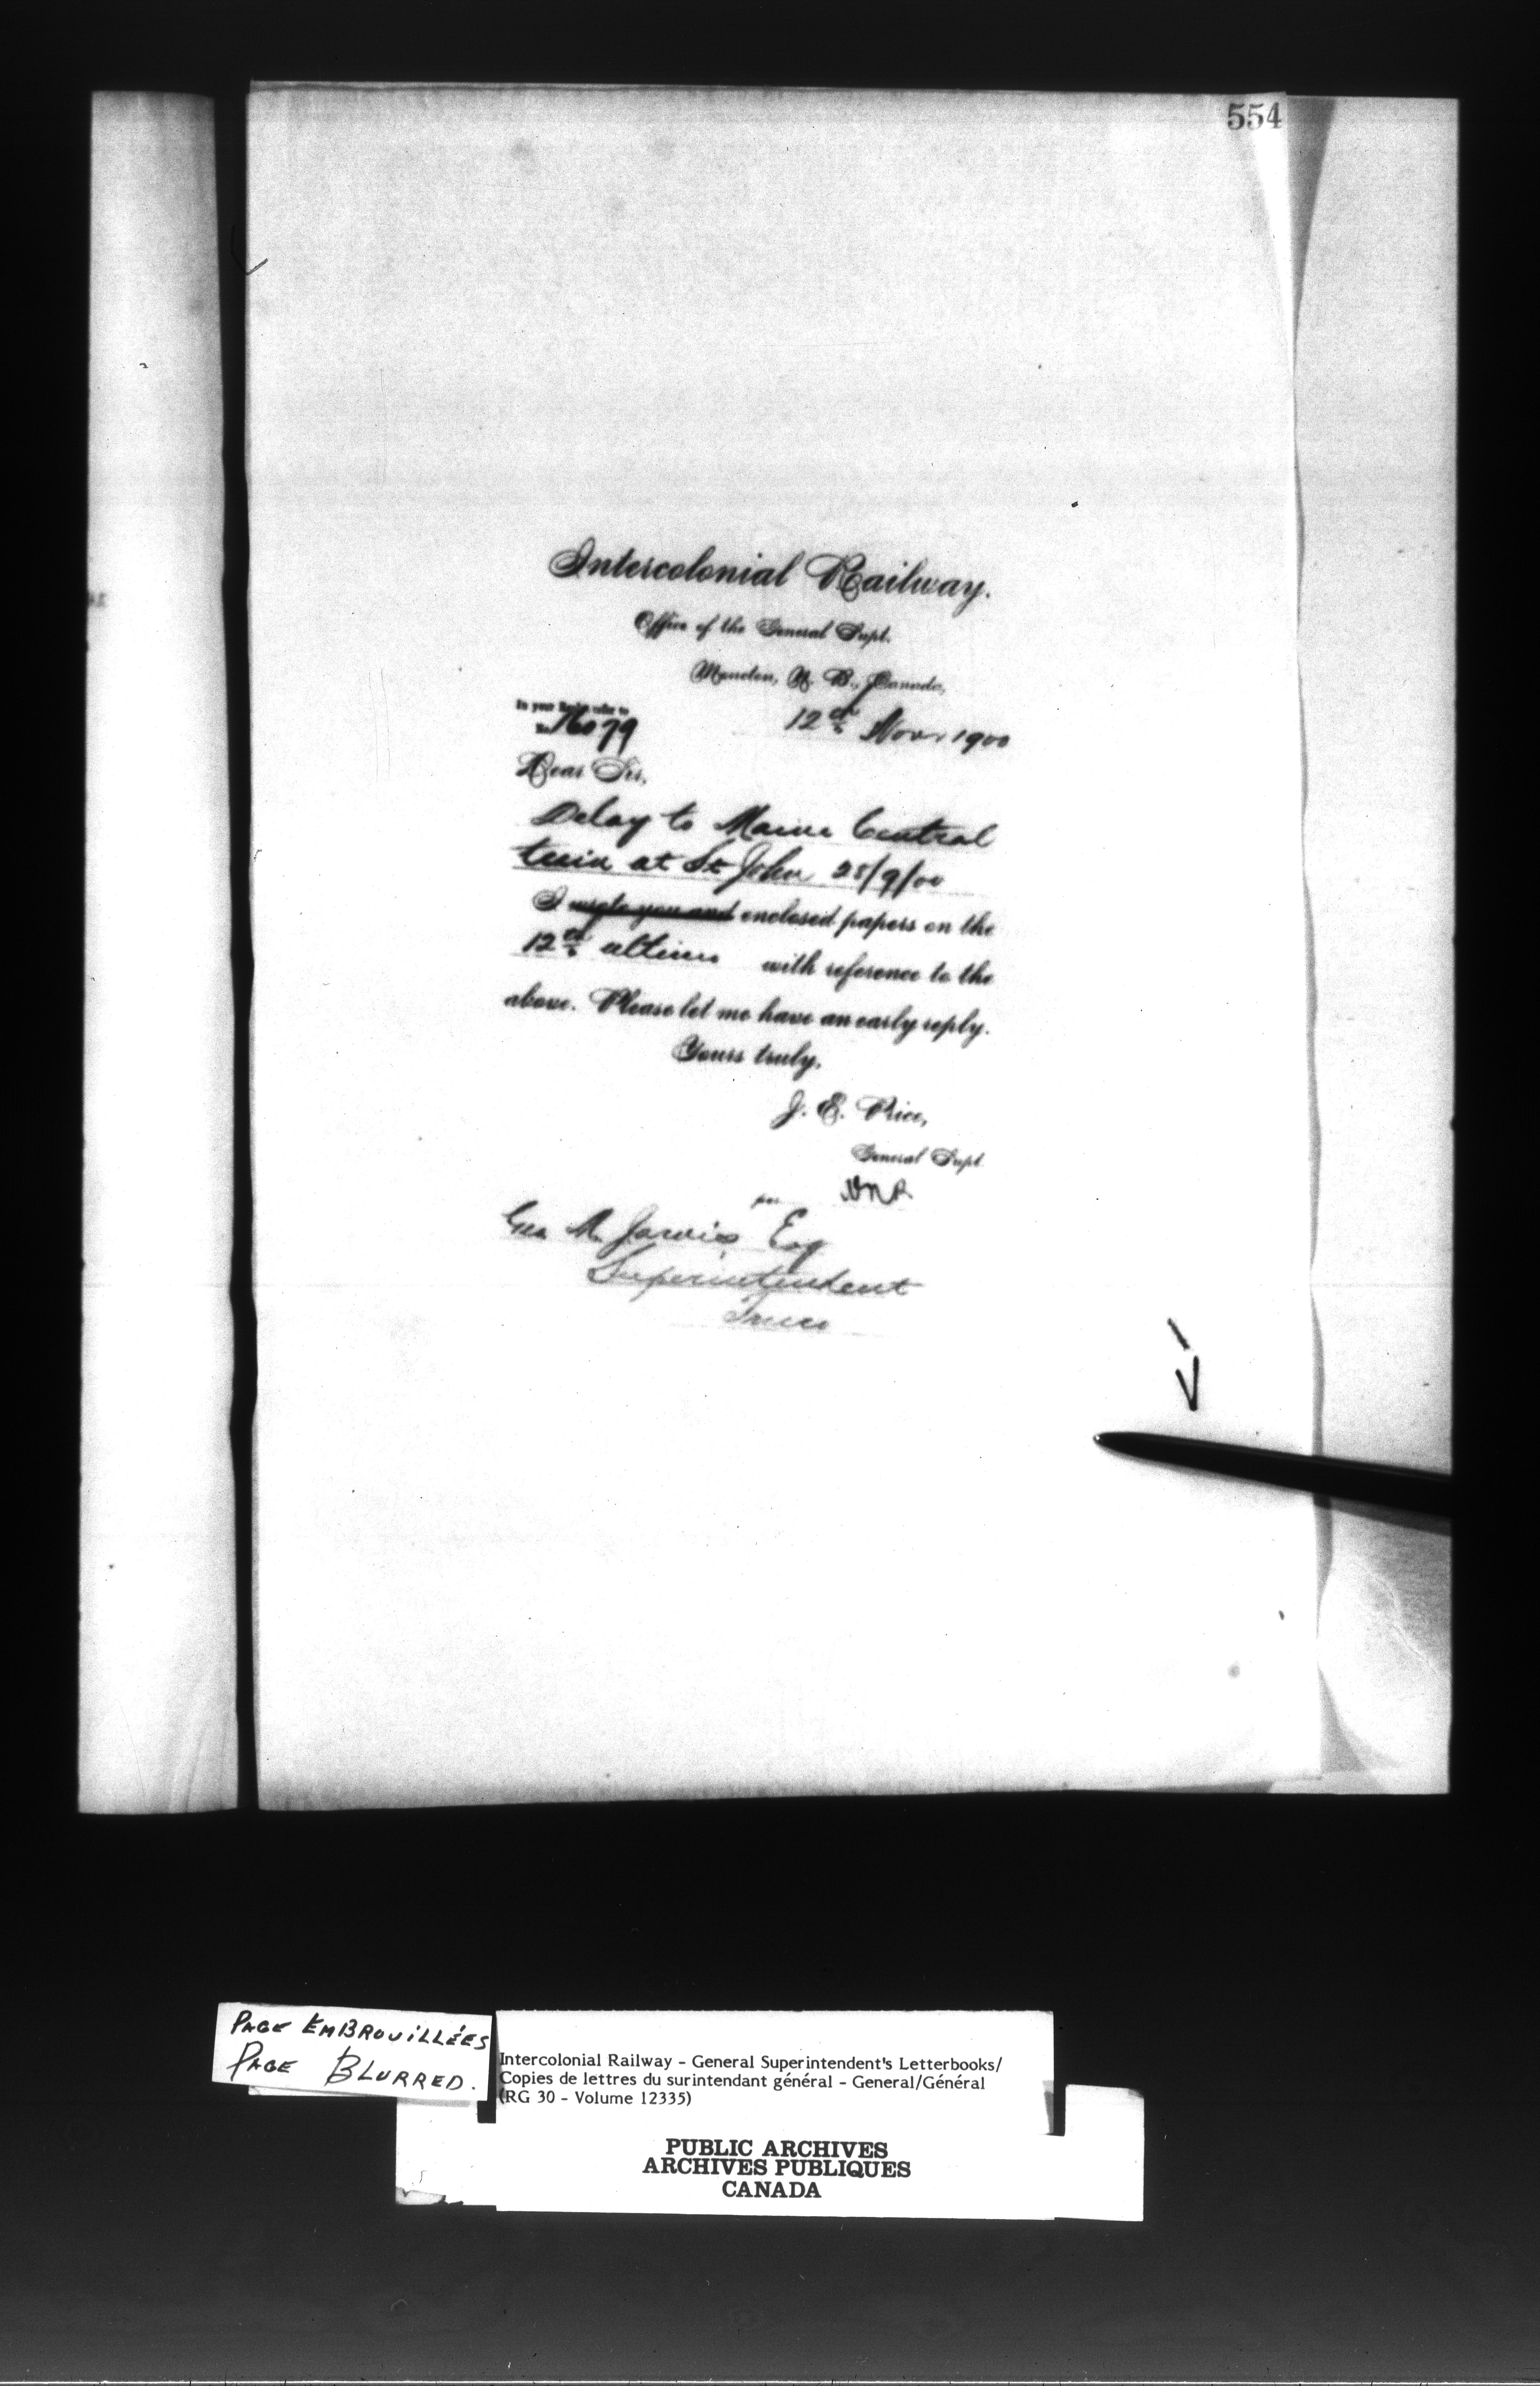 554
Intercolonial Railway.
Office of the General Supt.
Moncton, N. B., Canada,
In your Reply refer to
No. 76079
12th Nov. 1900
Dear Sir,
Delay to Maine Central
train at St John 28/9/00
I wrote you and enclosed papers on the
12th ultimo with reference to the
above. Please let me have an early reply.
Yours truly,
J. E. Price,
General Supt.
per
Geo M. Jarvis Esq
Superintendent
Truro
PAGE EMBROUILLÉES
PAGE BLURRED.
Intercolonial Railway - General Superintendent's Letterbooks/
Copies de lettres du surintendant général - General/Général
(RG 30 - Volume 12335)
PUBLIC ARCHIVES
ARCHIVES PUBLIQUES
CANADA